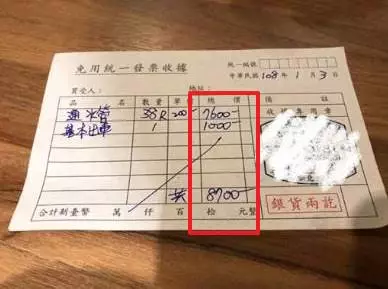 免用統一發票收據
統一編號
中華民國 108 年 1 月 3 日
買受人： 地址：
品 名 數量 單價 總 價 備 註
通水管 38尺 200 7600
收據專用章
基本出車 1 1000
共 8700
銀貨兩訖
合計新臺幣 萬 仟 百 拾 元整